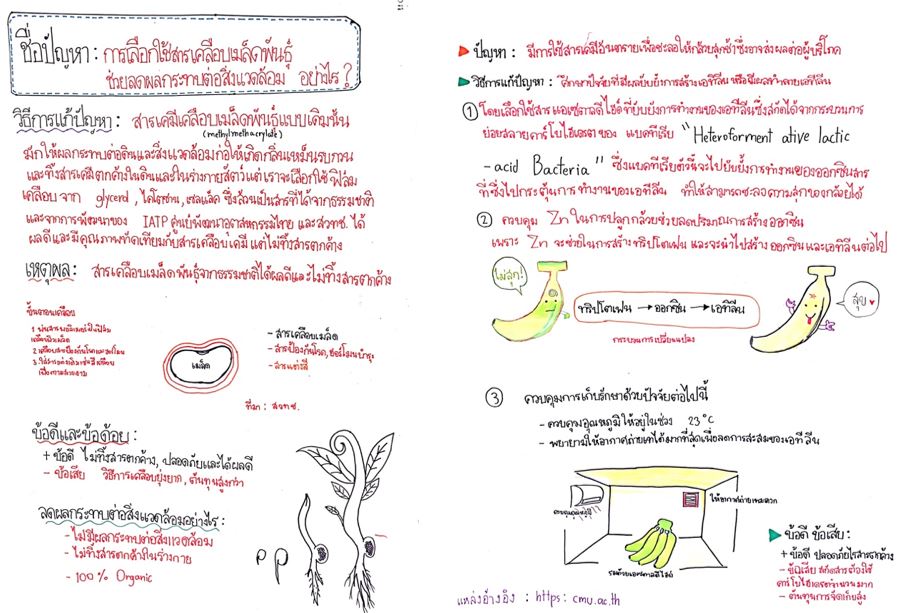 ชื่อปัญหา : การเลือกใช้สารเคลือบเมล็ดพันธุ์
ช่วยลดผลกระทบต่อสิ่งแวดล้อม อย่างไร ?
วิธีการแก้ปัญหา : สารเคมีเคลือบเมล็ดพันธุ์แบบเดิมนั้น
(methylmethacrylate)
มักให้ผลกระทบต่อดินและสิ่งแวดล้อมก่อให้เกิดกลิ่นเหม็นรบกวน
และทิ้งสารเคมีตกค้างในดินและในร่างกายสัตว์ แต่เราจะเลือกใช้ ฟิล์ม
เคลือบ จาก glycerol, ไคโตซาน, เชลแล็ค ซึ่งล้วนเป็นสารที่ได้จากธรรมชาติ
และจากการพัฒนาของ IATP ศูนย์พัฒนาอุตสาหกรรมไทย และสวทช. ได้
ผลดีและมีคุณภาพทัดเทียมกับสารเคลือบเคมี แต่ไม่ทิ้งสารตกค้าง
เหตุผล : สารเคลือบเมล็ดพันธุ์จากธรรมชาติได้ผลดีและไม่ทิ้งสารตกค้าง
ขั้นตอนเคลือบ
เมล็ด
- สารเคลือบเมล็ด
- สารป้องกันโรค, ฮอร์โมนบำรุง
- สารแต่งสี
ที่มา : สวทช.
ข้อดีและข้อด้อย :
+ ข้อดี ไม่ทิ้งสารตกค้าง, ปลอดภัยและได้ผลดี
- ข้อเสีย วิธีการเคลือบยุ่งยาก, ต้นทุนสูงกว่า
ลดผลกระทบต่อสิ่งแวดล้อมอย่างไร :
- ไม่มีผลกระทบต่อสิ่งแวดล้อม
- ไม่ทิ้งสารตกค้างในร่างกาย
- 100 % Organic
ปัญหา : มีการใช้สารเคมีอันตรายเพื่อชะลอให้กล้วยสุกช้าซึ่งอาจส่งผลต่อผู้บริโภค
วิธีการแก้ปัญหา : ศึกษาปัจจัยที่มีผลยับยั้งการสร้างเอทิลีน หรือมีผลทำลายเอทิลีน
① โดยเลือกใช้สาร แอเซตาลดีไฮด์ ที่ยับยั้งการทำงานของเอทิลีนซึ่งสกัดได้จากกระบวนการ
ย่อยสลายคาร์โบไฮเดรตของ แบคทีเรีย "Heteroferment ative lactic
-acid Bacteria" ซึ่งแบคทีเรียตัวนี้จะไปยับยั้งการทำงานของออกซินสาร
ที่ซึ่งไปกระตุ้นการทำงานของเอทิลีน ทำให้สามารถชะลอความสุกของกล้วยได้
② ควบคุม Zn ในการปลูกกล้วยช่วยลดปริมาณการสร้างออกซิน
เพราะ Zn จะช่วยในการสร้างทริปโตเฟน และจะนำไปสร้าง ออกซินและเอทิลีนต่อไป
ไม่สุก!
ทริปโตเฟน → ออกซิน → เอทิลีน
กระบวนการเปลี่ยนแปลง
สุข
③ ควบคุมการเก็บรักษาด้วยปัจจัยต่อไปนี้
- ควบคุมอุณหภูมิให้อยู่ในช่วง 23°C
- พยายามให้อากาศถ่ายเทได้มากที่สุดเพื่อลดการสะสมของเอทิลีน
ให้อากาศถ่ายเทสะดวก
ข้อดี ข้อเสีย :
+ ข้อดี ปลอดภัยไร้สารตกค้าง
- ข้อเสีย สกัดสารต้องใช้
คาร์โบไฮเดรตจำนวนมาก
- ต้นทุนการจัดเก็บสูง
แหล่งอ้างอิง : https: cmu.ac.th